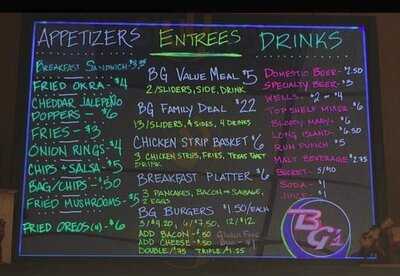 APPETIZERS
BREAKFAST SANDWICH $3.95
FRIED OKRA - $4
CHEDDAR JALEPEÑO
POPPERS - $6
FRIES - $3
ONION RINGS - $4
CHIPS + SALSA - $5
BAG/CHIPS - $.50
FRIED MUSHROOMS - $5
FRIED OREOS - $6
ENTREES
BG VALUE MEAL $5
2/SLIDERS, SIDE, DRINK
BG FAMILY DEAL $22
13/SLIDERS, 4 SIDES, 4 DRINKS
CHICKEN STRIP BASKET $6
3 CHICKEN STRIPS, FRIES, TEXAS TOAST
DRINK
BREAKFAST PLATTER $6
3 PANCAKES, BACON OR SAUSAGE,
2 EGGS
BG BURGERS $1.50/EACH
3/$4.20, 6/$7.50, 12/$12
ADD BACON - $.50 Gluten Free
ADD CHEESE - $.50 Bun - $1
DOUBLE/$.75 TRIPLE/$1.25
DRINKS
DOMESTIC BEER - $2.50
SPECIALTY BEER - $3
WELLS - $2 or $4
TOP SHELF MIXER $6
BLOODY MARY - $6
LONG ISLAND - $6.50
RUM PUNCH $5
MALT BEVERAGE $2.75
BUCKET - 5/$10
SODA - $1
JUICE - $1
BG's